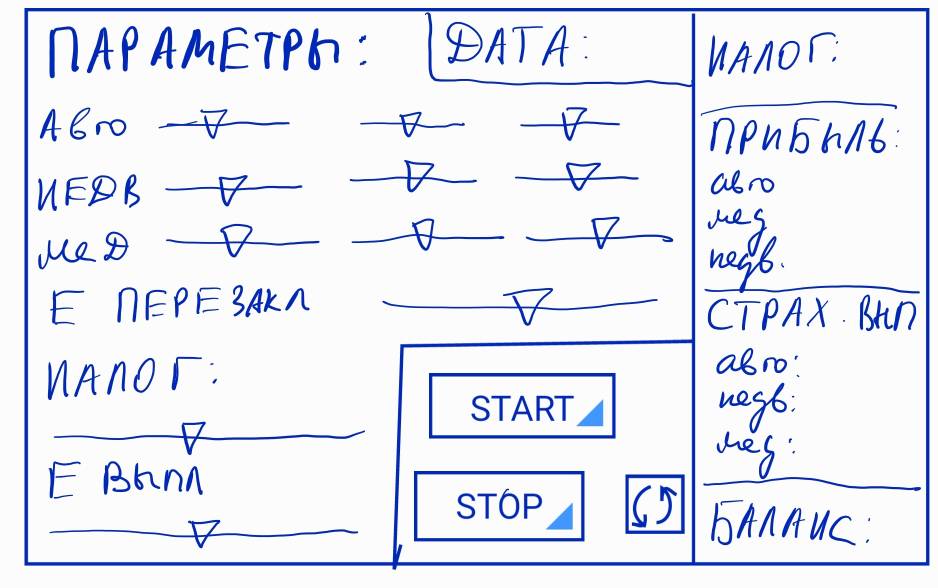 ПАРАМЕТРЫ:
ДАТА:
Авто
НЕДВ
МеД
Е ПЕРЕЗАКЛ
НАЛОГ:
Е ВЫПЛ
START
STOP
НАЛОГ:
ПРИБЫЛЬ:
авто
мед
недв.
СТРАХ. ВЫП
авто:
недв:
мед:
БАЛАНС: